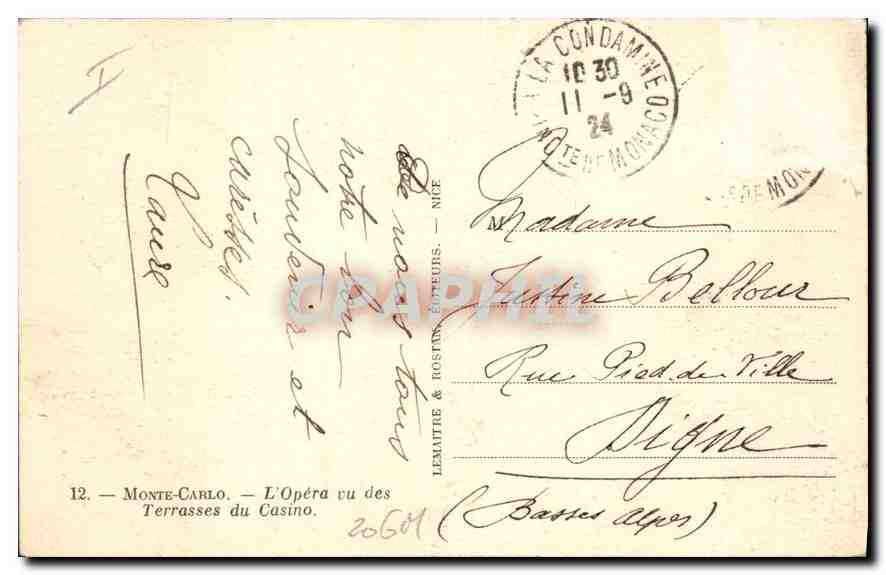 LA CONDAMINE
10 30
11 -9
24
PTE DE MONACO
DE MON
De nous tous
notre bon
Souvenir et
caresses.
Laure
LEMAITRE & ROSTAN, ÉDITEURS. — NICE
Madame
Justine Bellour
Rue Pied-de-Ville
Digne
(Basses Alpes)
12. — MONTE-CARLO. — L'Opéra vu des
Terrasses du Casino.
CPAPHIL